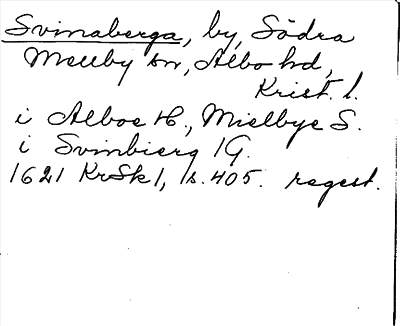 Svinaberga, by, Södra
Mellby sn, Albo hd,
Krist. l.
i Alboe H., Mielbye S.
i Svinbierg 1G.
1621 KrSk 1, s. 405. regest.